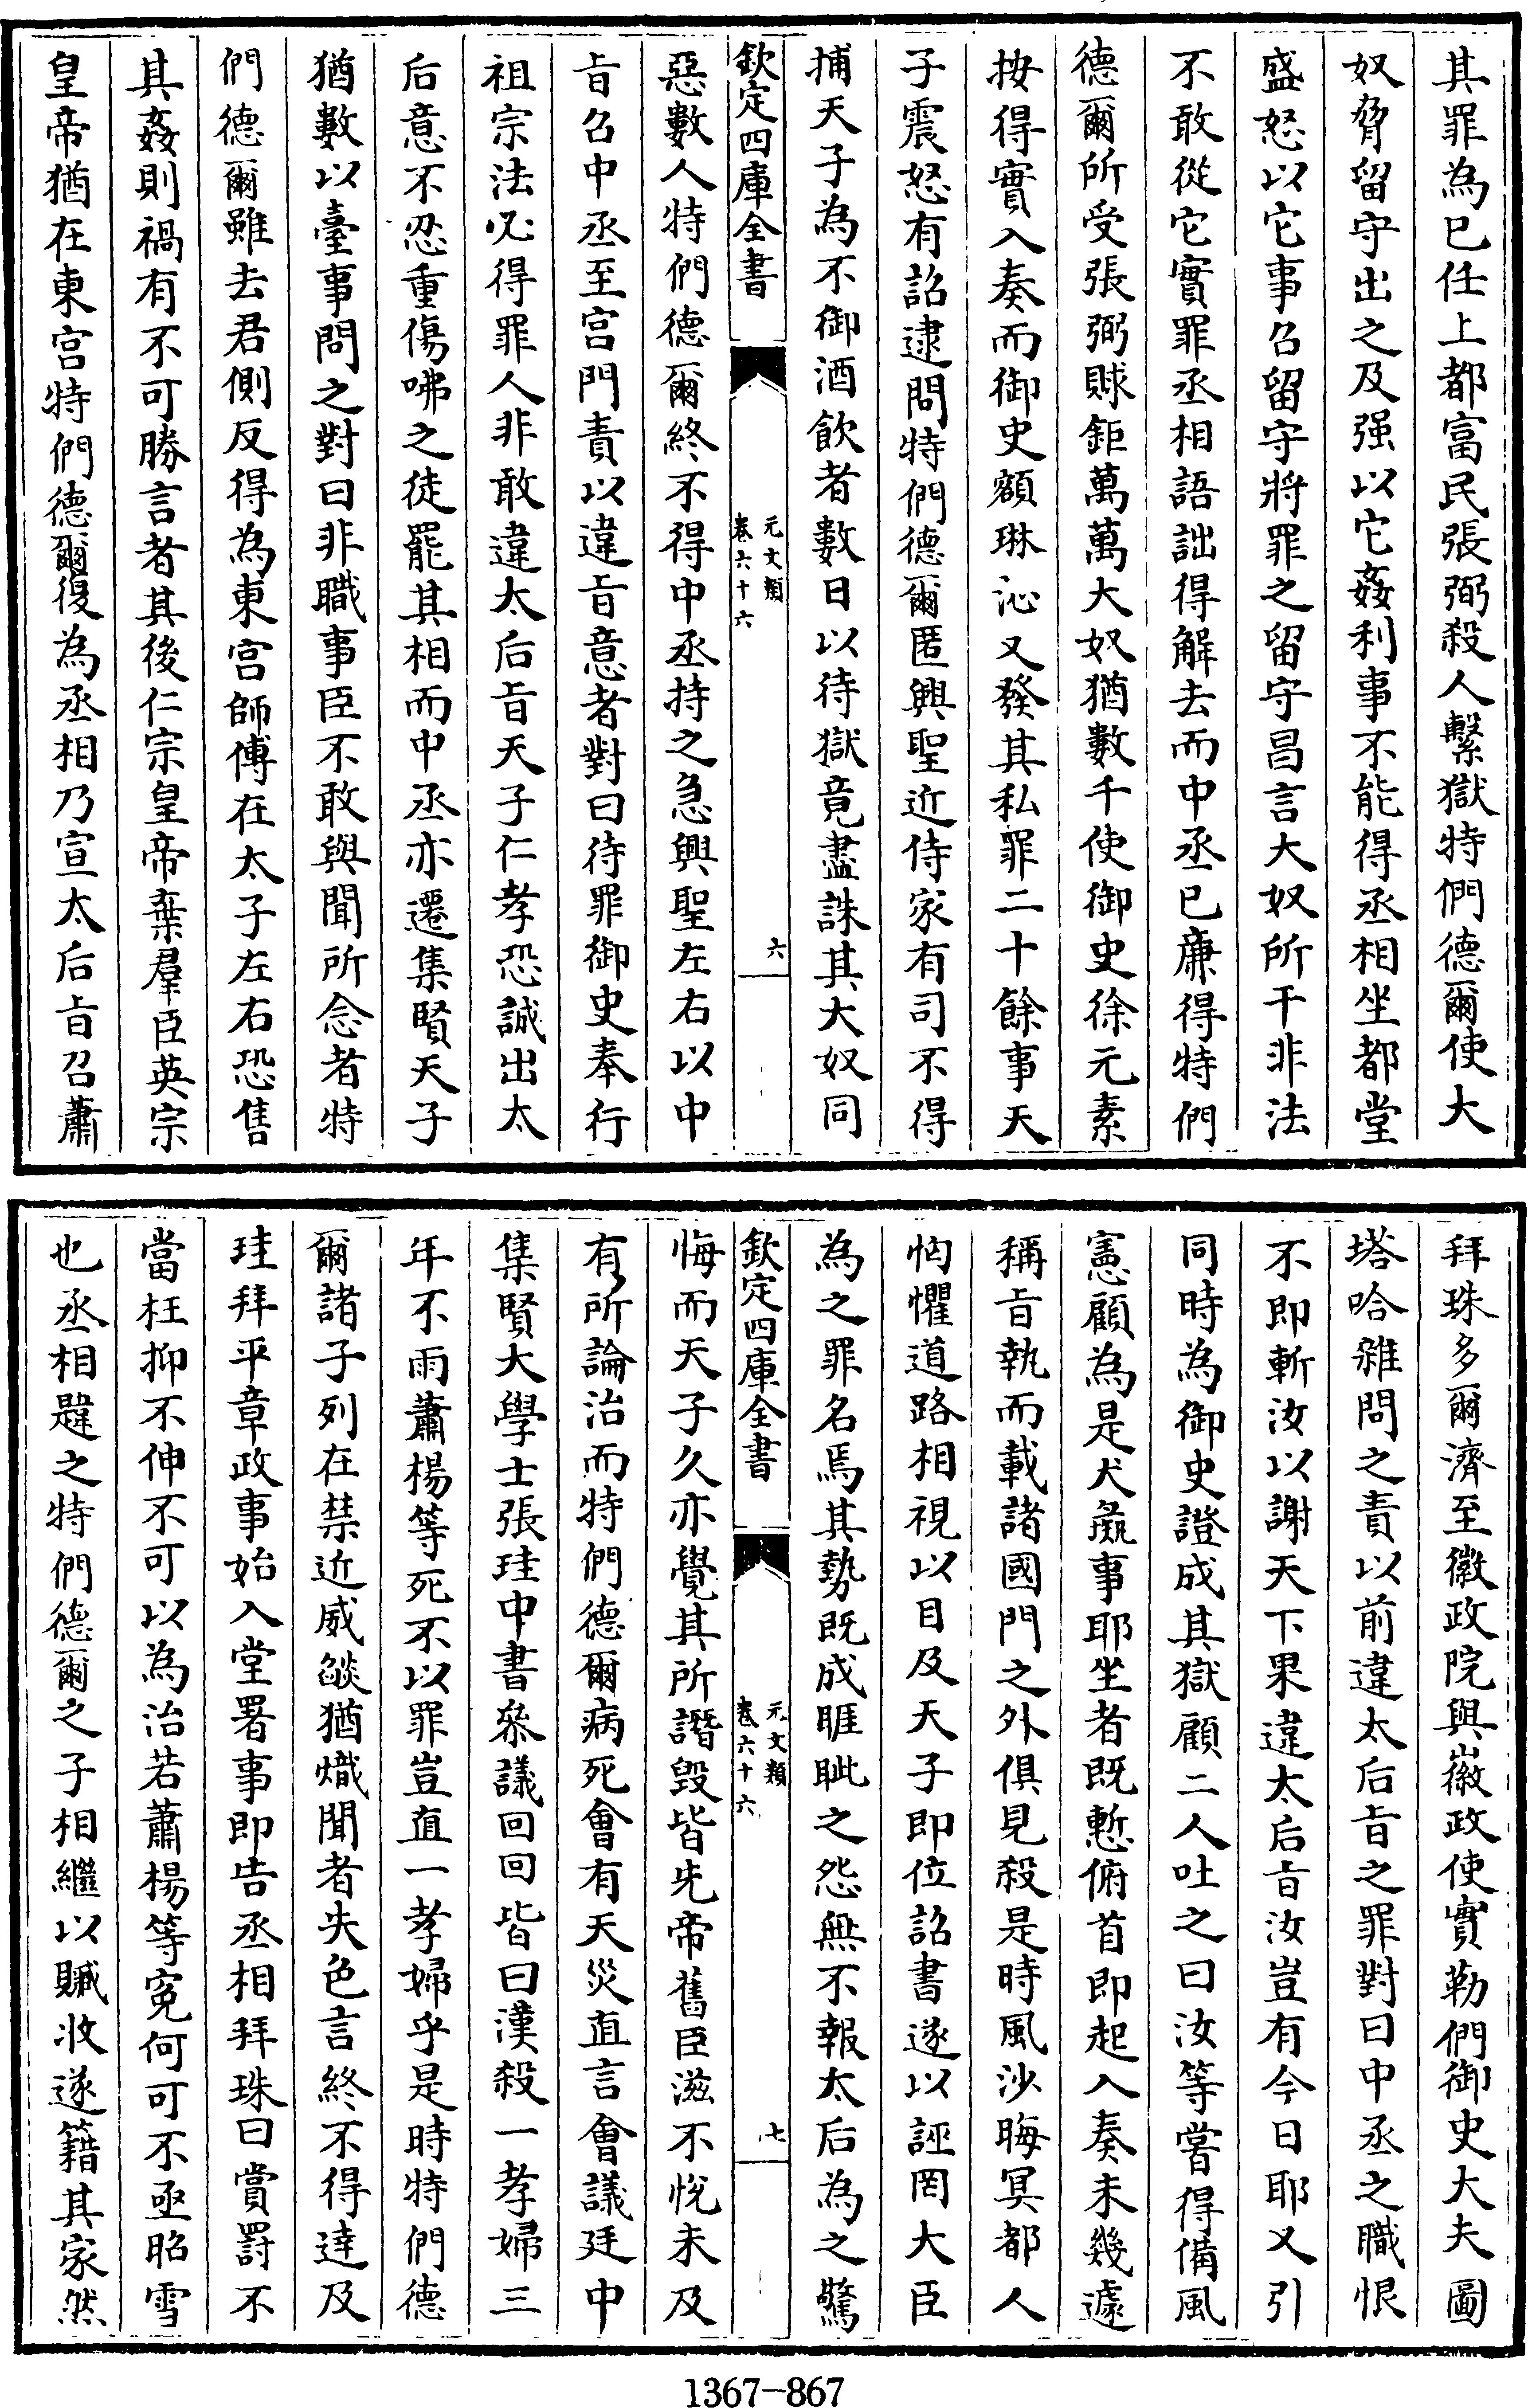 其罪為已任上都富民張弼殺人繫獄特們德爾使大
奴脅留守出之及强以它姦利事不能得丞相坐都堂
盛怒以它事召留守將罪之留守昌言大奴所干非法
不敢從它實罪丞相語詘得解去而中丞已廉得特們
德爾所受張弼賕鉅萬萬大奴猶數千使御史徐元素
按得實入奏而御史額琳沁又發其私罪二十餘事天
子震怒有詔逮問特們德爾匿興聖近侍家有司不得
捕天子為不御酒飲者數日以待獄竟盡誅其大奴同
欽定四庫全書
元文類
卷六十六
六
惡數人特們德爾終不得中丞持之急興聖左右以中
旨召中丞至宫門責以違旨意者對曰待罪御史奉行
祖宗法必得罪人非敢違太后旨天子仁孝恐誠出太
后意不忍重傷咈之徒罷其相而中丞亦遷集賢天子
猶數以臺事問之對曰非職事臣不敢與聞所念者特
們德爾雖去君側反得為東宫師傅在太子左右恐售
其姦則禍有不可勝言者其後仁宗皇帝棄羣臣英宗
皇帝猶在東宫特們德爾復為丞相乃宣太后旨召蕭
拜珠多爾濟至徽政院與徽政使實勒們御史大夫圖
塔哈雜問之責以前違太后旨之罪對曰中丞之職恨
不即斬汝以謝天下果違太后旨汝豈有今日耶又引
同時為御史證成其獄顧二人吐之曰汝等嘗得備風
憲顧為是犬彘事耶坐者既慙俯首即起入奏未幾遽
稱旨執而載諸國門之外俱見殺是時風沙晦冥都人
恟懼道路相視以目及天子即位詔書遂以誣罔大臣
為之罪名焉其勢既成睚眦之怨無不報太后為之驚
欽定四庫全書
元文類
卷六十六
七
悔而天子久亦覺其所譖毁皆先帝舊臣滋不悅未及
有所論治而特們德爾病死會有天災直言會議廷中
集賢大學士張珪中書叅議回回皆曰漢殺一孝婦三
年不雨蕭楊等死不以罪豈直一孝婦乎是時特們德
爾諸子列在禁近威燄猶熾聞者失色言終不得達及
珪拜平章政事始入堂署事即告丞相拜珠曰賞罰不
當枉抑不伸不可以為治若蕭楊等寃何可不亟昭雪
也丞相韙之特們德爾之子相繼以贓收遂籍其家然
1367-867